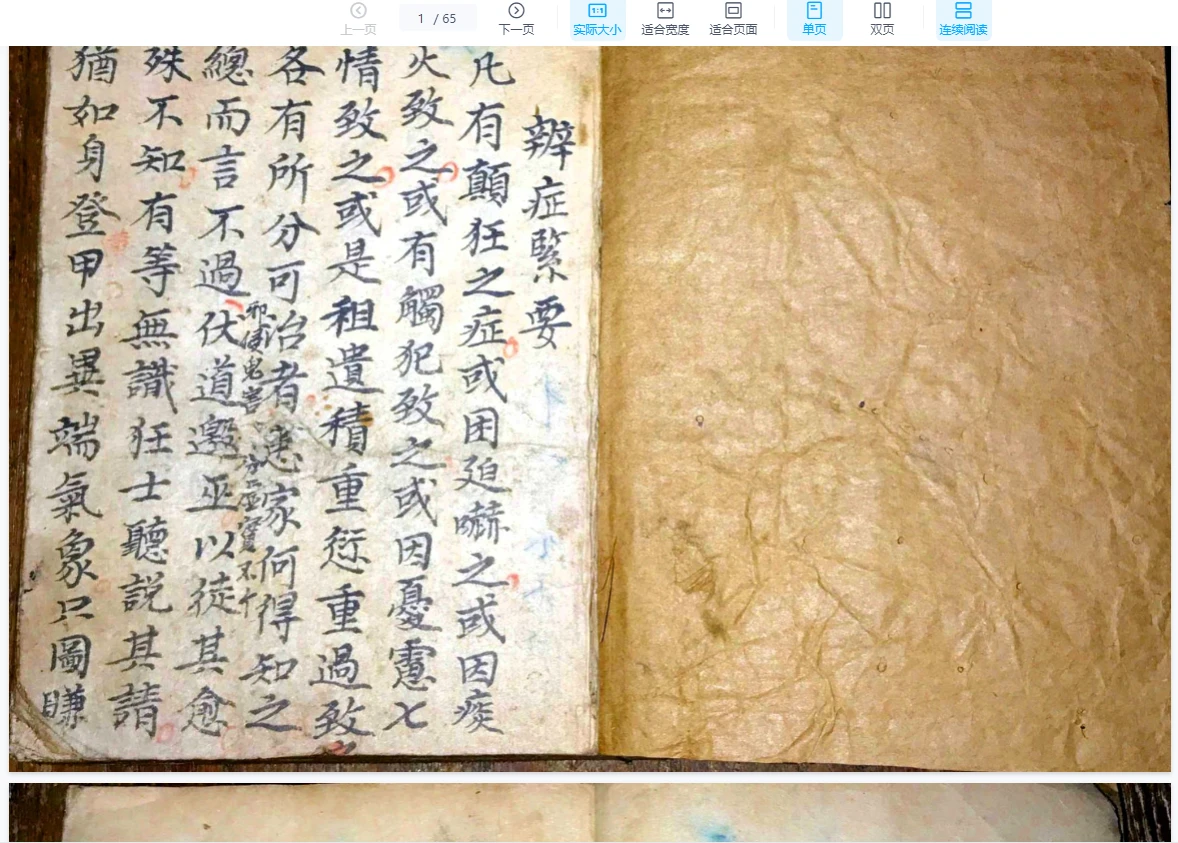 上一页
1 / 65
下一页
实际大小
适合宽度
适合页面
单页
双页
连续阅读
辨症緊要
凡有顛狂之症或困廹嚇之或因痰
火致之或有觸犯致之或因憂慮七
情致之或是祖遺積重愆重過致
各有所分可治者患家何得知之
邪侵鬼害
不
總而言不過伏道邀巫以徒其愈
殊不知有等無識狂士聽説其請
猶如身登甲出異端氣象只圖賺